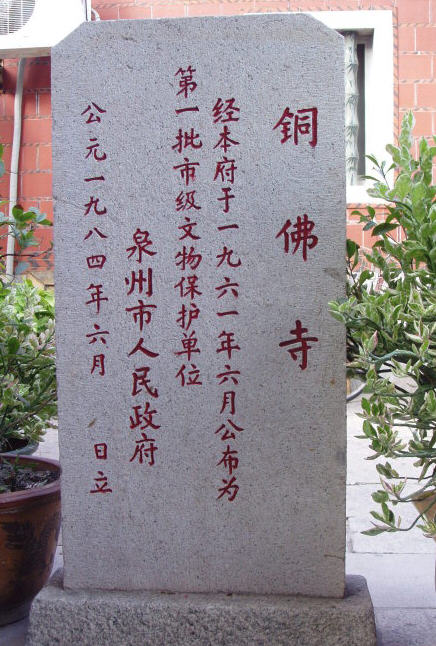 铜佛寺
经本府于一九六一年六月公布为
第一批市级文物保护单位
泉州市人民政府
公元一九八四年六月 日立